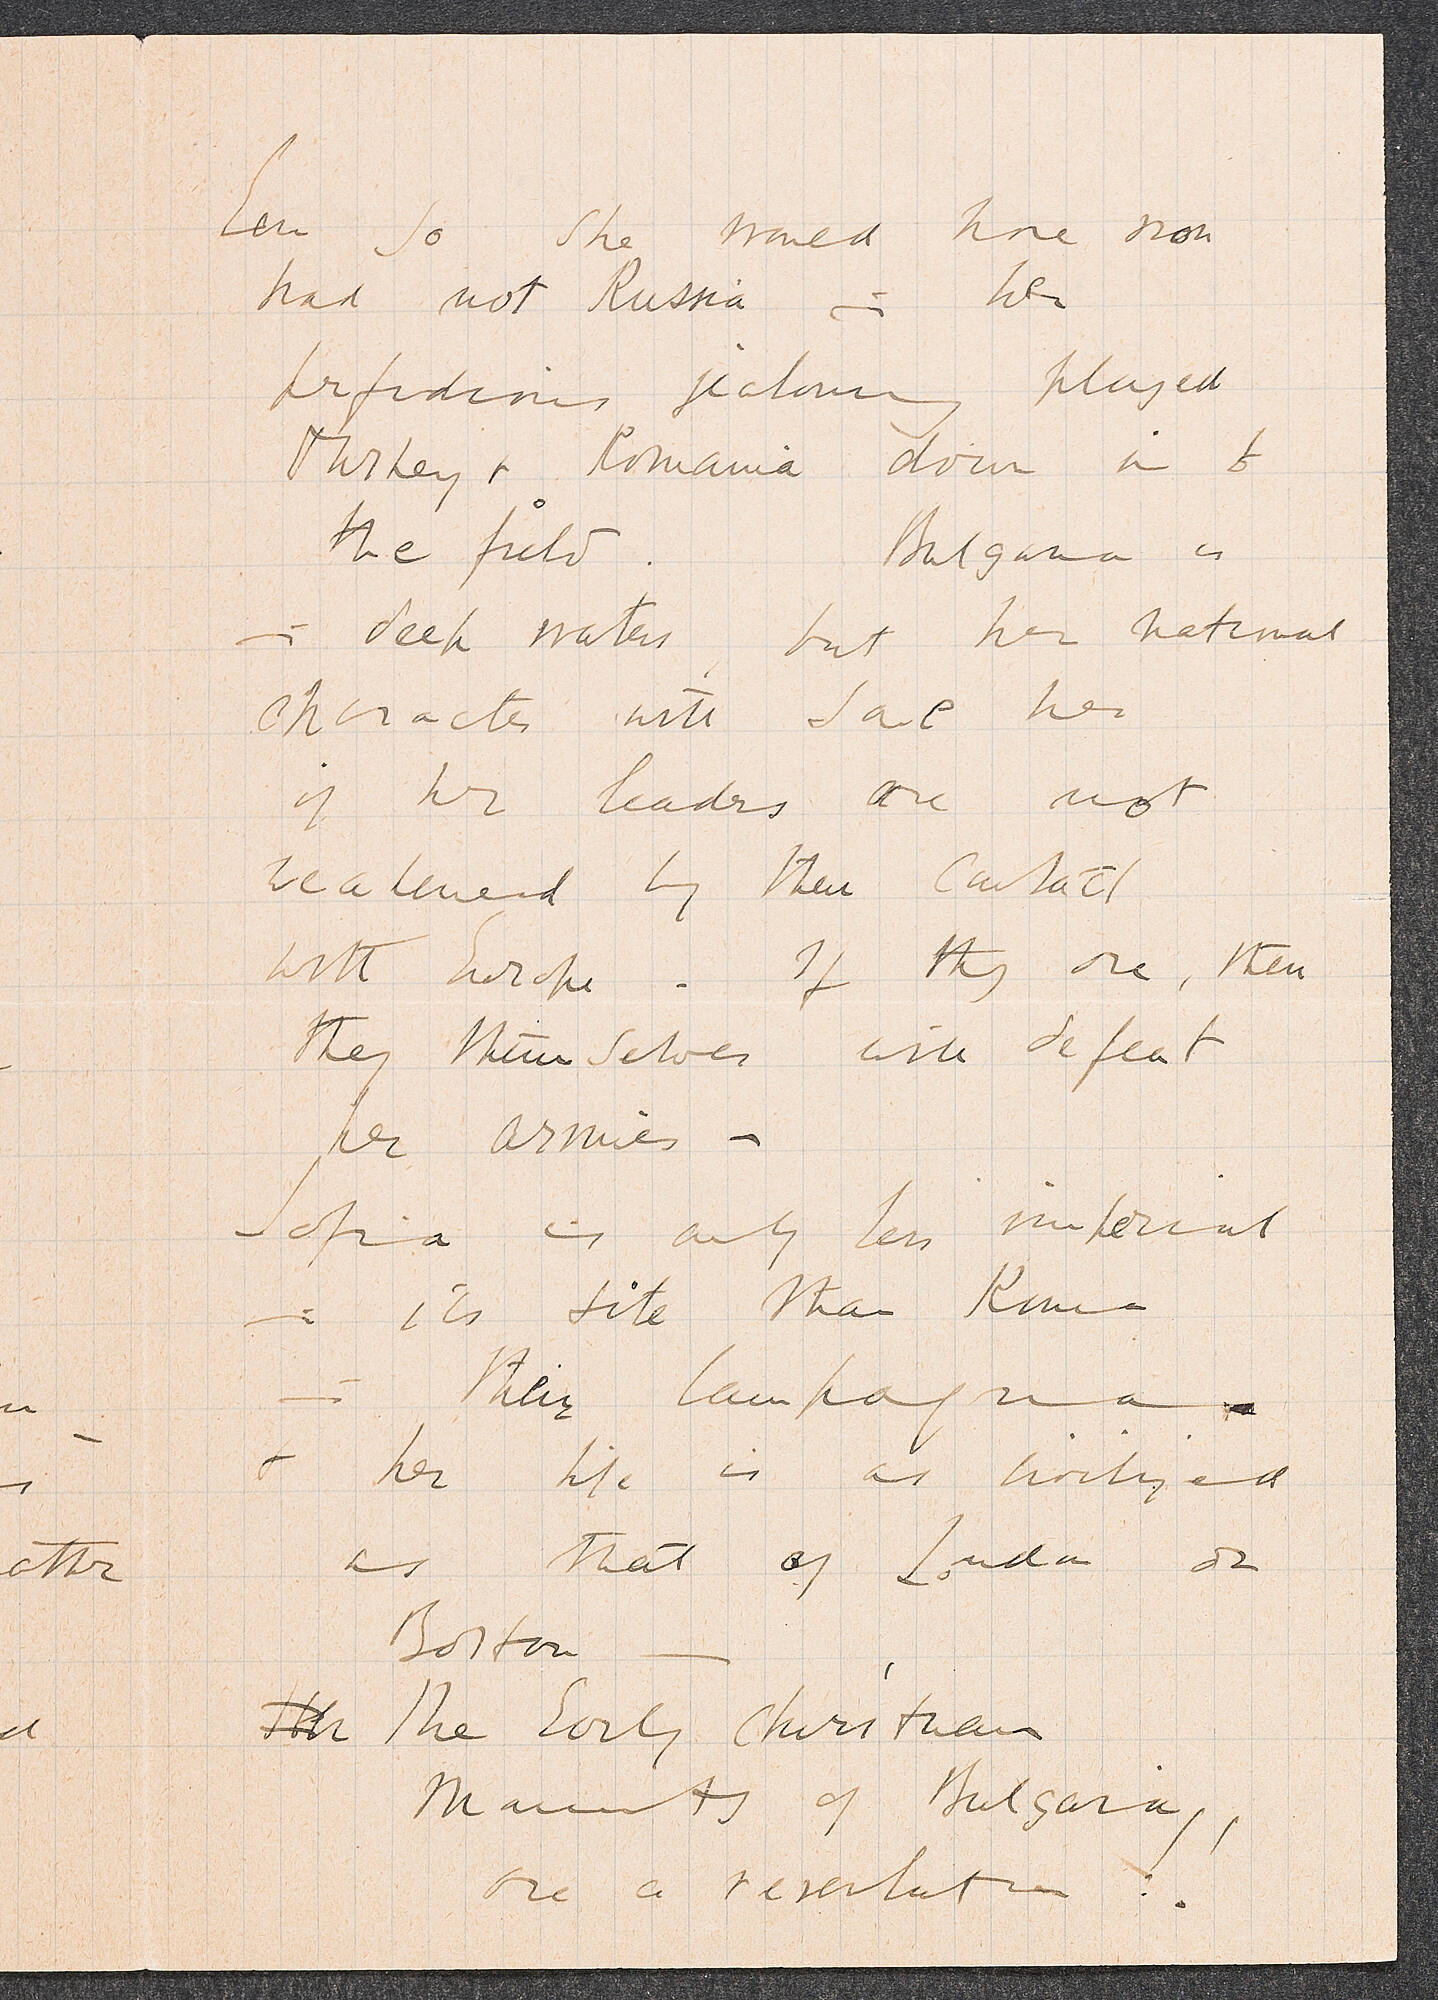 Even so she would have won
had not Russia in her
perfidious jealousy pluged
Turkey & Romania down in to
the field. Bulgaria is
in deep waters, but her national
character will save her
if her leaders are not
weakened by their contact
with Europe. If they are, then
they themselves will defeat
her armies -
Sofia is only less imperial
in its site than Rome
in their Campagna -
& her life is as civilized
as that of London or
Boston —
The Early Christian
Monuments of Bulgaria,
are a revelation:.
atter